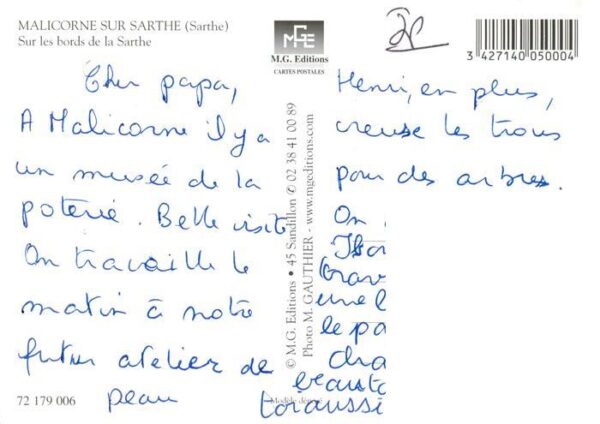 MALICORNE SUR SARTHE (Sarthe)
Sur les bords de la Sarthe
MGE
M.G. Editions
CARTES POSTALES
3 427140 050004
Cher papa,
A Malicorne il y a
un musée de la
poterie. Belle visite
On travaille le
matin à notre
futur atelier de
peau
72 179 006
© M.G. Editions • 45 Sandillon ✆ 02 38 41 00 89
Photo M. GAUTHIER - www.mgeditions.com
Henri, en plus,
creuse les trous
pour des arbres.
On
grav
une l
le pa
cha
beauto
toraussi